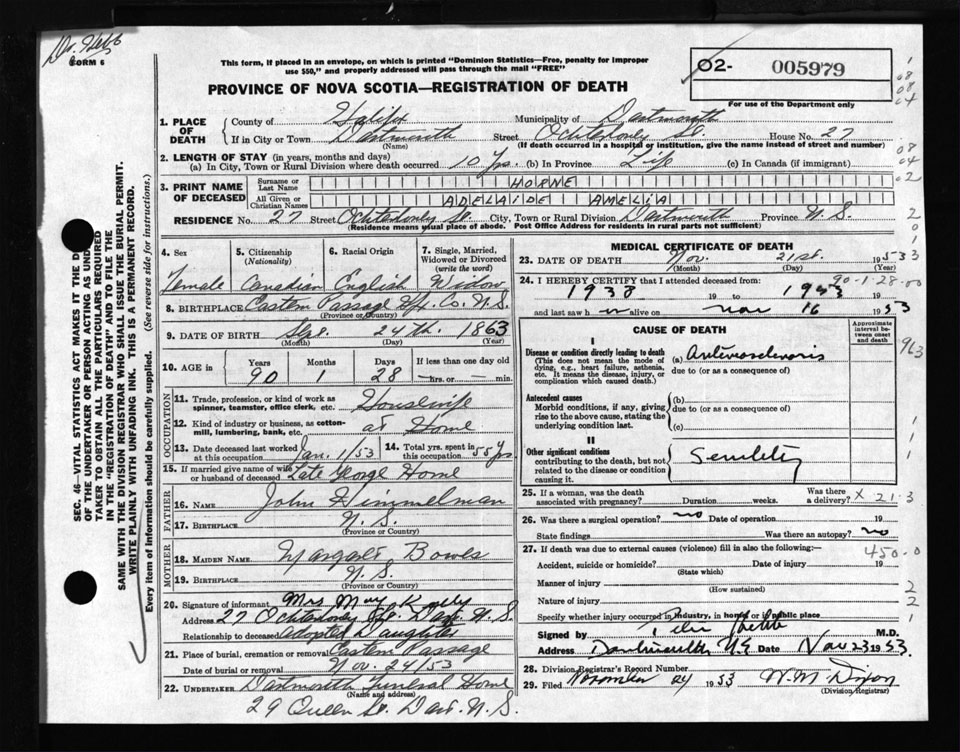 Dr. Hebb
FORM 6
This form, if placed in an envelope, on which is printed "Dominion Statistics—Free, penalty for improper
use $50," and properly addressed will pass through the mail "FREE"
O2- 005979
For use of the Department only
PROVINCE OF NOVA SCOTIA—REGISTRATION OF DEATH
1. PLACE OF DEATH
County of Halifax Municipality of Dartmouth
If in City or Town Dartmouth Street Ochterloney St. House No. 27
(Name) (If death occurred in a hospital or institution, give the name instead of street and number)
2. LENGTH OF STAY (in years, months and days)
(a) In City, Town or Rural Division where death occurred 10 Yrs. (b) In Province Life (c) In Canada (if immigrant)
3. PRINT NAME OF DECEASED
Surname or Last Name HORNE
All Given or Christian Names ADELAIDE AMELIA
RESIDENCE No. 27 Street Ochterloney St. City, Town or Rural Division Dartmouth Province N.S.
(Residence means usual place of abode. Post Office Address for residents in rural parts not sufficient)
4. Sex Female
5. Citizenship (Nationality) Canadian
6. Racial Origin English
7. Single, Married, Widowed or Divorced (write the word) Widow
8. BIRTHPLACE Eastern Passage Hfx. Co. N.S.
(Province or Country)
9. DATE OF BIRTH Sep. 24th. 1863
(Month) (Day) (Year)
10. AGE in Years 90 Months 1 Days 28 If less than one day old hrs. or min.
OCCUPATION
11. Trade, profession, or kind of work as spinner, teamster, office clerk, etc. Housewife
12. Kind of industry or business, as cotton-mill, lumbering, bank, etc. at Home
13. Date deceased last worked at this occupation Jan. 1/53
14. Total yrs. spent in this occupation 55 Yrs.
15. If married give name of wife or husband of deceased Late George Horne
FATHER
16. NAME John Himmelman
17. BIRTHPLACE N.S.
(Province or Country)
MOTHER
18. MAIDEN NAME Margaret Bowes
19. BIRTHPLACE N.S.
(Province or Country)
20. Signature of informant Mrs May
Address 27 Ochterloney St. Dart. N.S.
Relationship to deceased Adopted Daughter
21. Place of burial, cremation or removal Eastern Passage
Date of burial or removal Nov. 24/53
22. UNDERTAKER Dartmouth Funeral Home
(Name and address)
29 Queen St. Dart. N.S.
MEDICAL CERTIFICATE OF DEATH
23. DATE OF DEATH Nov. 21st. 1953
(Month) (Day) (Year)
24. I HEREBY CERTIFY that I attended deceased from: 90-1-28-00
1938 19 to 1953 19
and last saw h er alive on Nov 16 1953
CAUSE OF DEATH
Approximate interval between onset and death
I
Disease or condition directly leading to death (a) Arteriosclerosis
(This does not mean the mode of dying, e.g., heart failure, asthenia, etc. It means the disease, injury, or complication which caused death.)
due to (or as a consequence of)
Antecedent causes
Morbid conditions, if any, giving rise to the above cause, stating the underlying condition last.
(b)
due to (or as a consequence of)
(c)
II
Other significant conditions
contributing to the death, but not related to the disease or condition causing it.
Senility
25. If a woman, was the death associated with pregnancy? Duration weeks. Was there a delivery? X 21-3
26. Was there a surgical operation? no Date of operation 19
State findings Was there an autopsy? no
27. If death was due to external causes (violence) fill in also the following:— 450-0
Accident, suicide or homicide? Date of injury 19
(State which)
Manner of injury
(How sustained)
Nature of injury
Specify whether injury occurred in industry, in home or in public place
Signed by Hebb M.D.
Address Dartmouth N.S. Date Nov 23 1953.
28. Division Registrar's Record Number
29. Filed November 24 1953 W.M. Dixon
(Division Registrar)
SEC. 46—VITAL STATISTICS ACT MAKES IT THE
OF THE UNDERTAKER OR PERSON ACTING AS
TAKER TO OBTAIN ALL THE PARTICULARS REQUIRED
IN THE "REGISTRATION OF DEATH" AND TO FILE THE
SAME WITH THE DIVISION REGISTRAR WHO SHALL ISSUE THE BURIAL PERMIT.
WRITE PLAINLY WITH UNFADING INK. THIS IS A PERMANENT RECORD.
Every item of information should be carefully supplied. (See reverse side for instructions.)